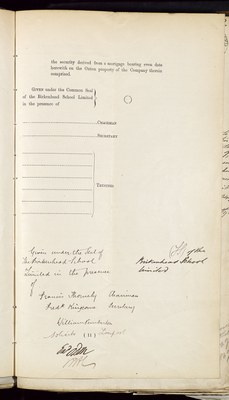 the security derived from a mortgage bearing even date
herewith on the Union property of the Company therein
comprised.
GIVEN under the Common Seal
of the Birkenhead School Limited
in the presence of
CHAIRMAN
SECRETARY
TRUSTEES
Given under the Seal of
the Birkenhead School
Limited in the presence
of
Seal of the
Birkenhead School
Limited
Francis Thornely Chairman
Secretary
William
Solicitor Liverpool